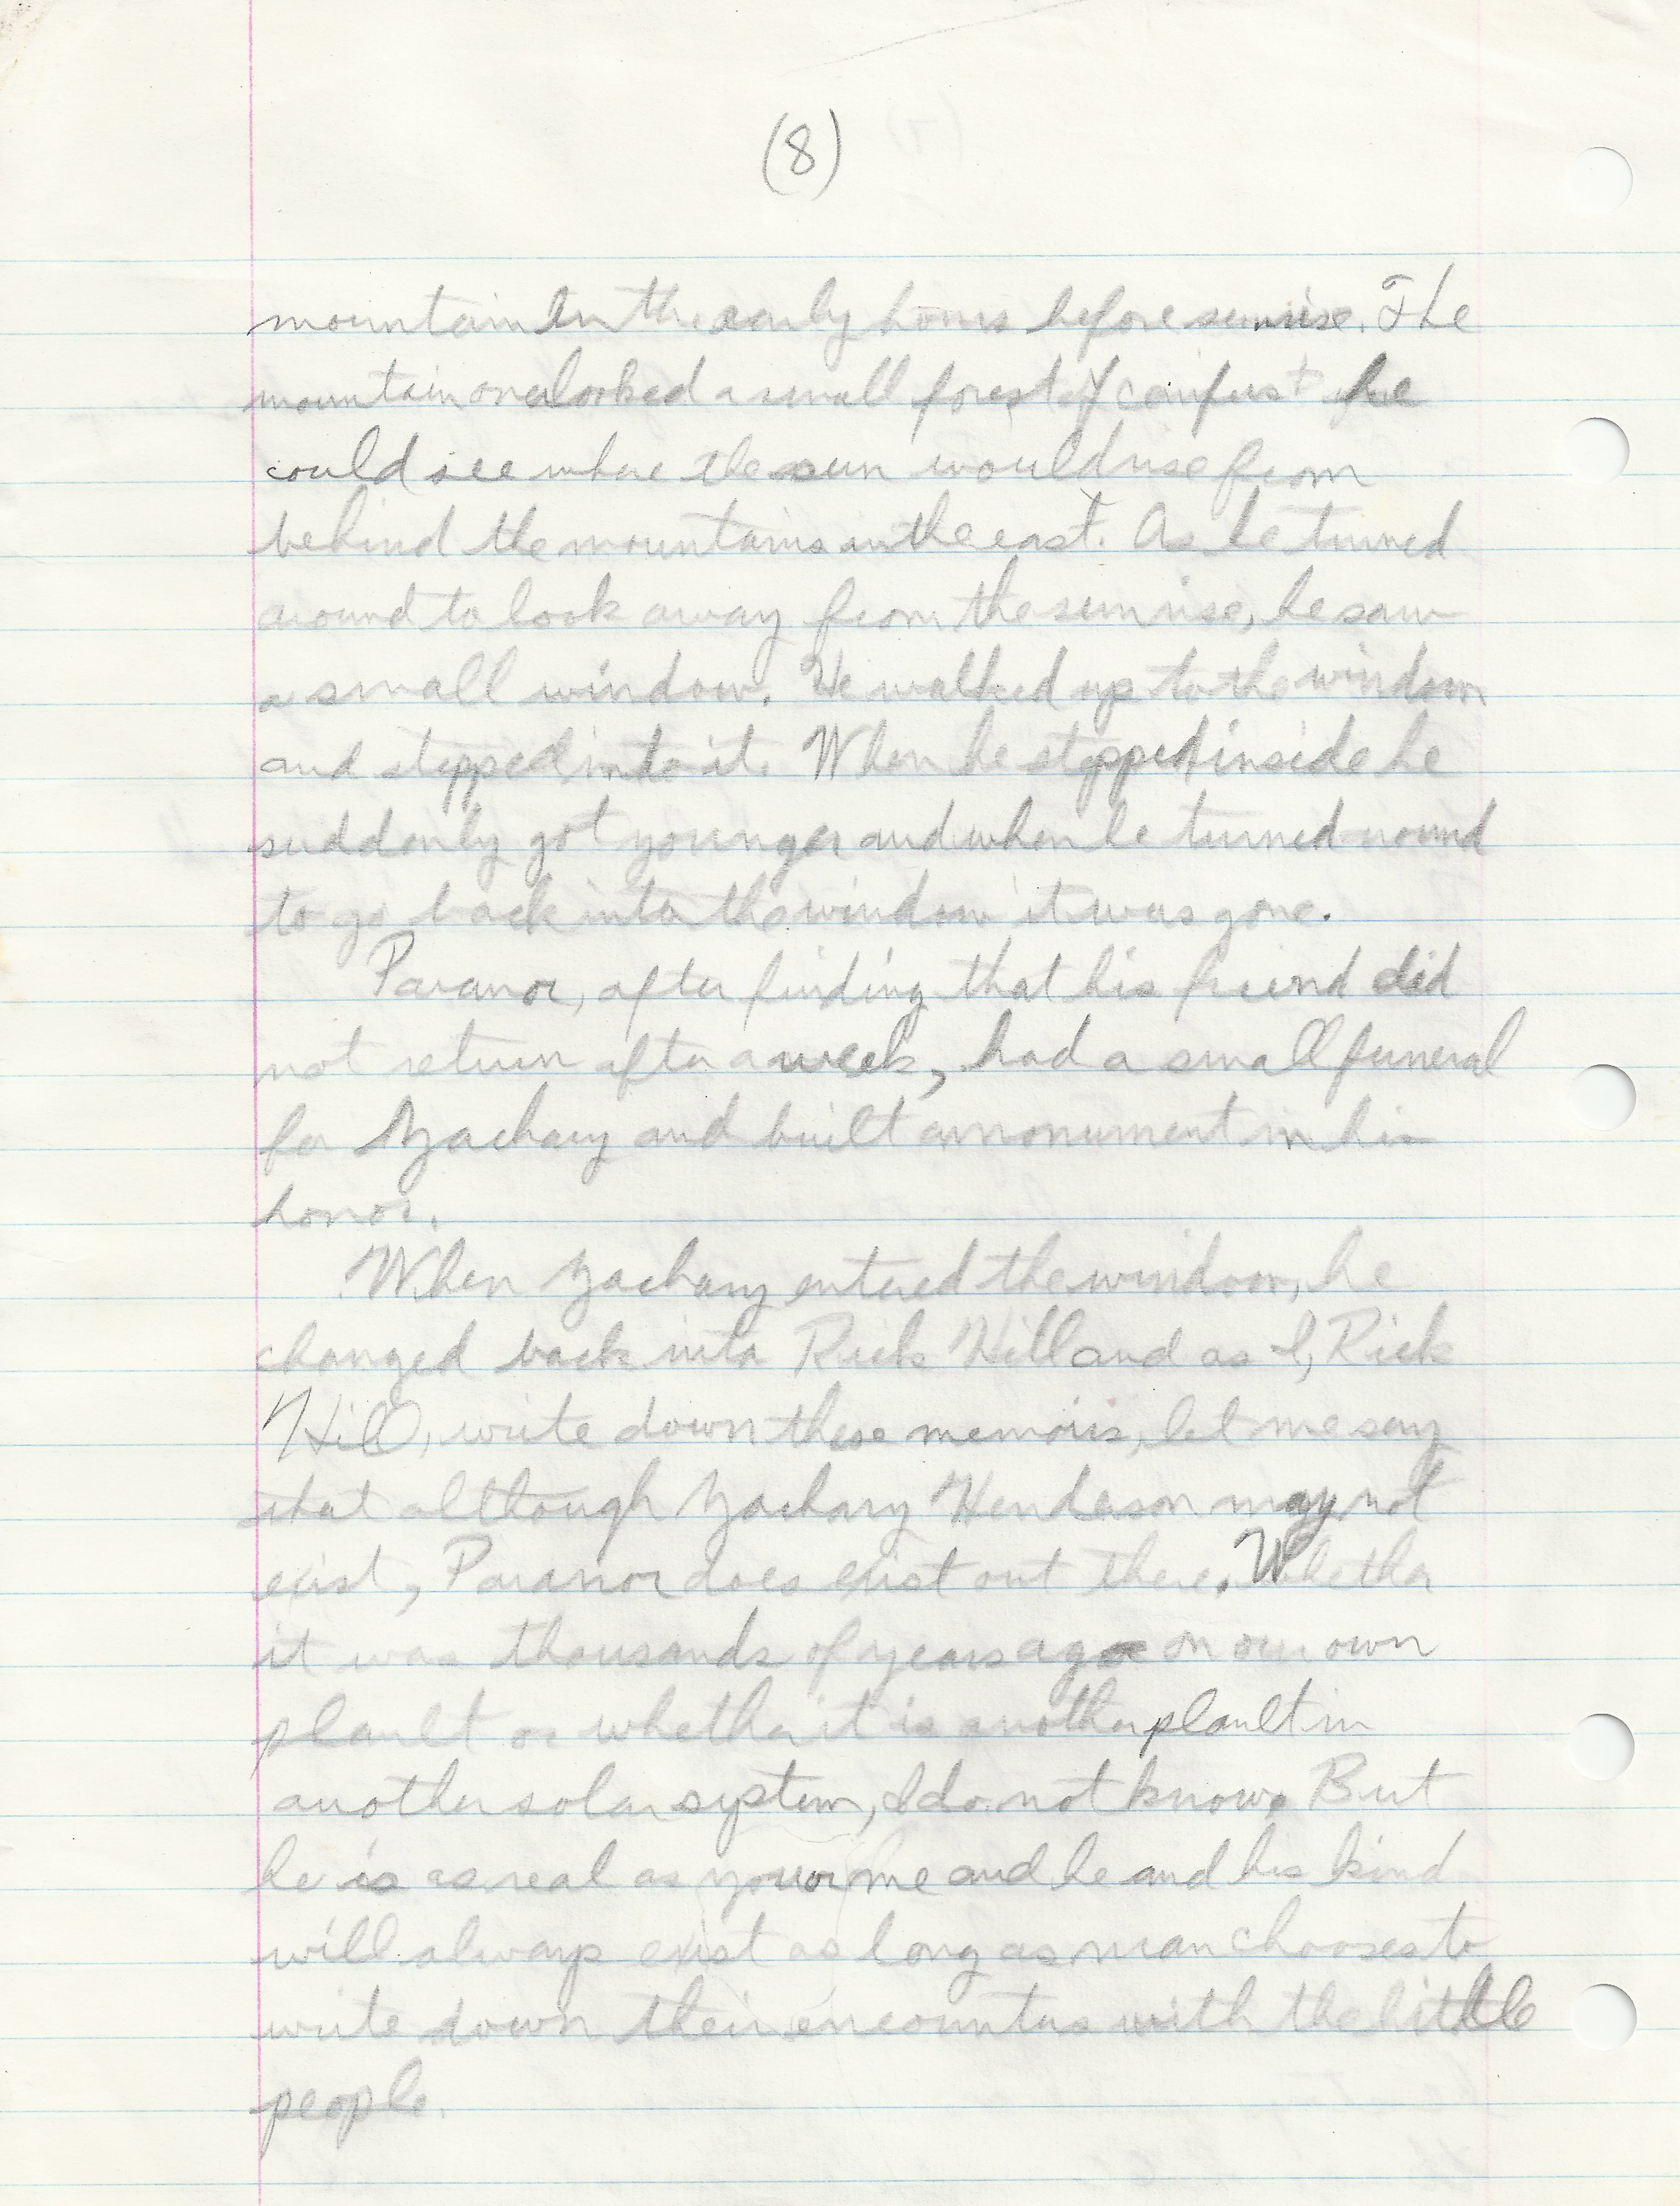 (8)
mountain in the early hours before sunrise. The
mountain overlooked a small forest of he
could see where the sun would rise from
behind the mountains in the east. As he turned
around to look away from the sunrise, he saw
a small window. He walked up to the window
and stepped into it. When he stepped inside he
suddenly got younger and when he turned around
to go back into the window it was gone.
Paranor, after finding that his friend did
not return after a week, had a small funeral
for Zachary and built a monument in his
honor.
When Zachary entered the window, he
changed back into Rick Hill and as I, Rick
Hill, write down these memoirs, let me say
that although Zachary Henderson may not
exist, Paranor does exist out there. Whether
it was thousands of years ago on our own
planet or whether it is another planet in
another solar system, I do not know. But
he is as real as you or me and he and his kind
will always exist as long as man chooses to
write down their encounters with the little
people.